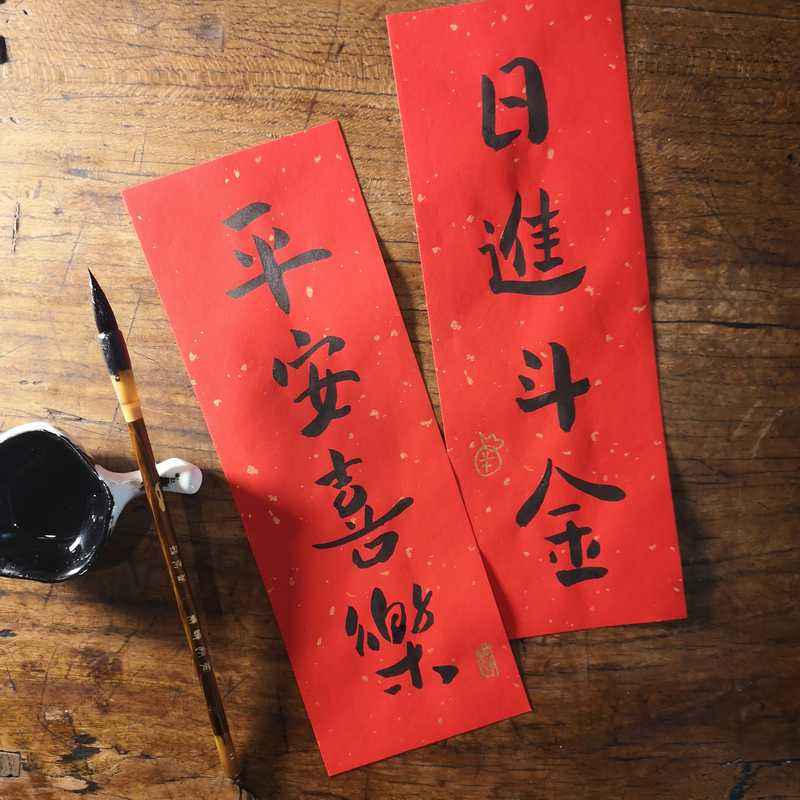 日進斗金
平安喜樂